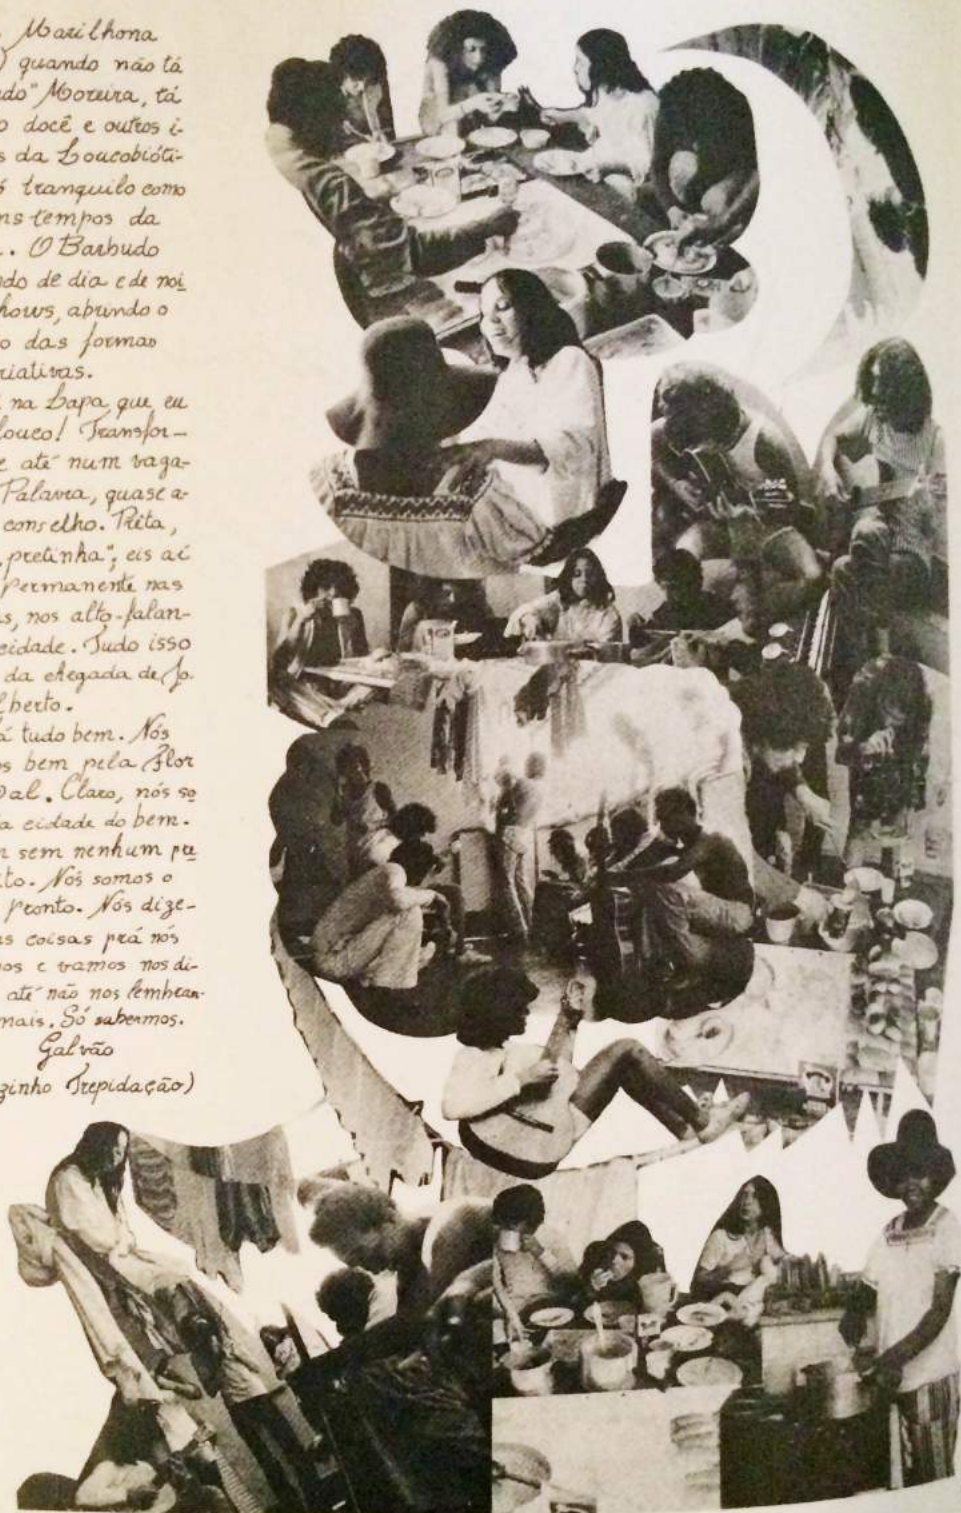 Marilhona
) quando não tá
do" Moreira, tá
o docê e outros i-
s da Loucobióti-
tranquilo como
ns tempos da
. O Barbudo
ndo de dia e de noi
hows, abrindo o
o das formas
riativas.
na Lapa que eu
louco! Transfor-
e até num vaga-
Palavra, quase a-
conselho. Preta,
pretinha", eis aí
Permanente nas
s, nos alto-falan-
cidade. Tudo isso
da chegada de Jo
lberto.
á tudo bem. Nós
os bem pela Flor
Dal. Claro, nós so
a cidade do bem.
m sem nenhum pre
ito. Nós somos o
Pronto. Nós dize-
as coisas prá nós
os e vamos nos di-
até não nos lembrar-
mais. Só sabermos.
Galvão
zinho Trepidação)